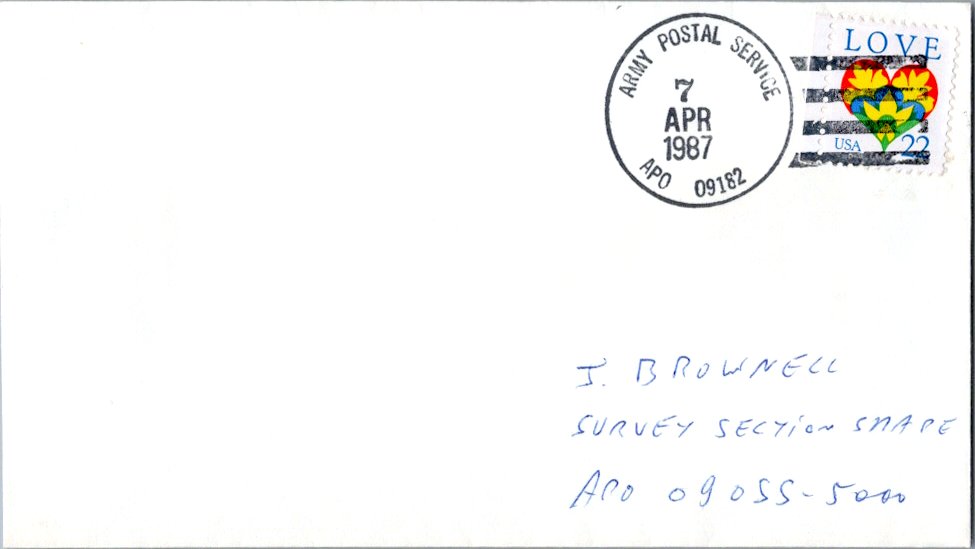 ARMY POSTAL SERVICE
7
APR
1987
APO 09182
LOVE
USA 22
J. BROWNELL
SURVEY SECTION SHAPE
APO 09055-5000